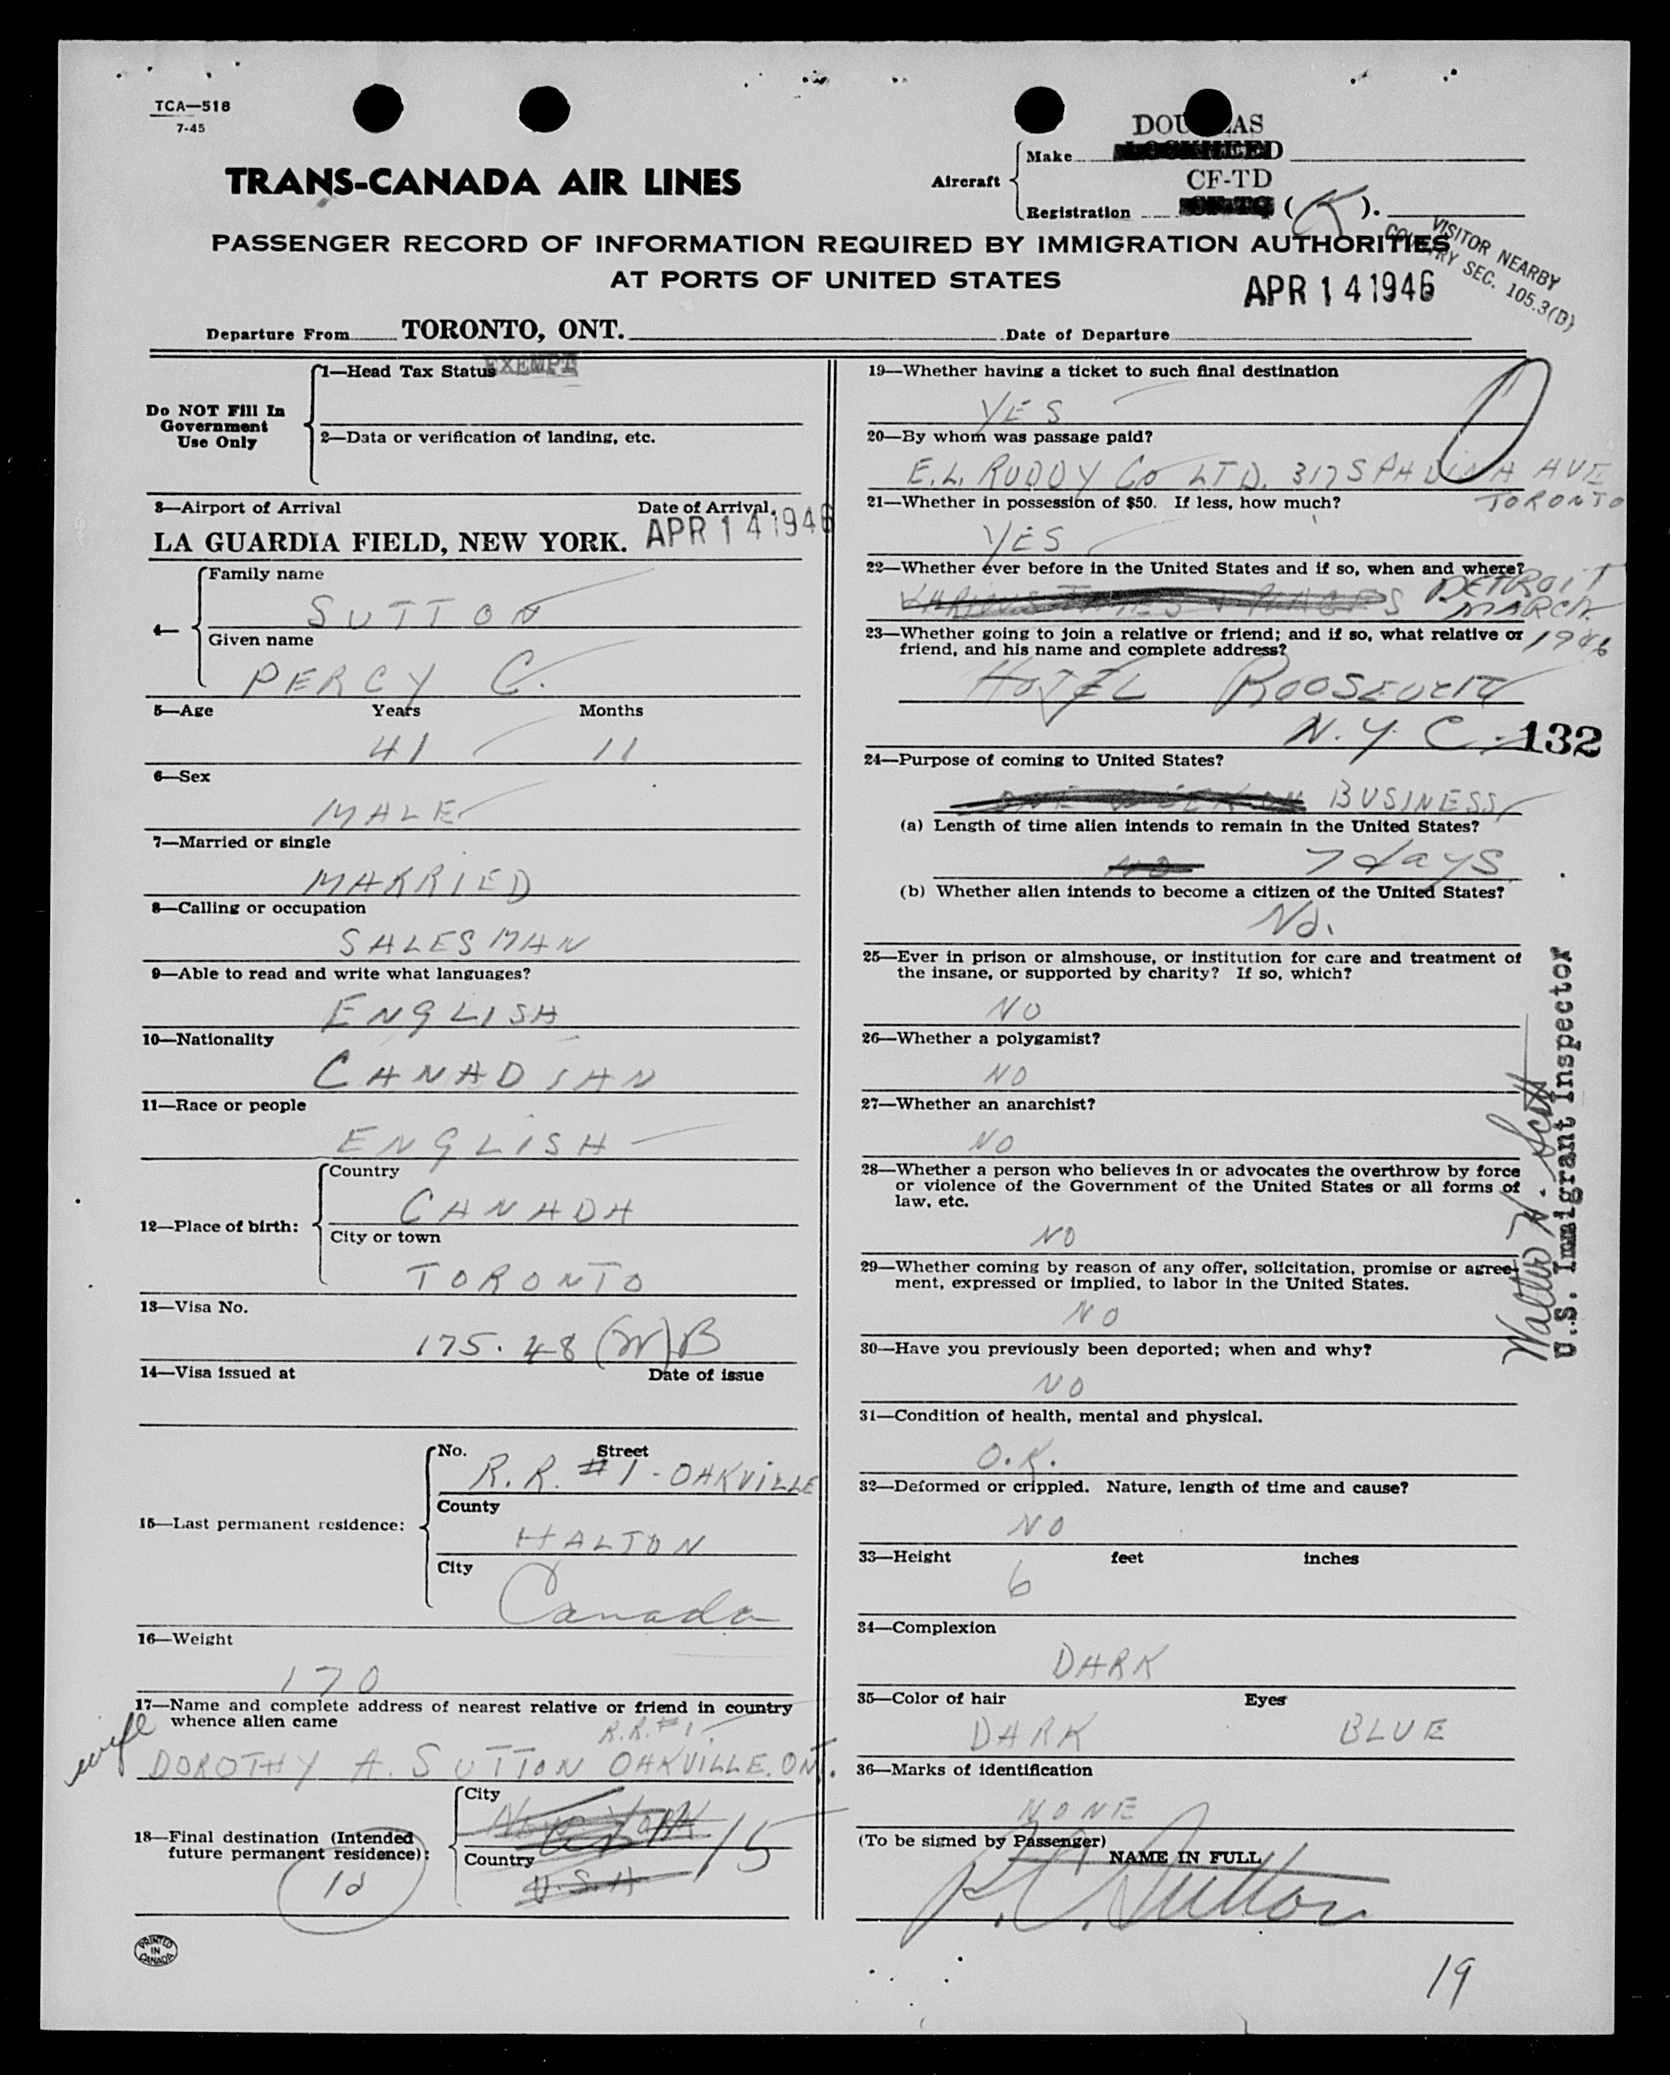 TCA—518
7-45
DOU AS
Make
LOCKHEED
TRANS-CANADA AIR LINES
Aircraft
CF-TD
Registration
(K).
PASSENGER RECORD OF INFORMATION REQUIRED BY IMMIGRATION AUTHORITIES
AT PORTS OF UNITED STATES
VISITOR NEARBY
COUNTRY SEC. 105.3(B)
APR 14 1946
Departure From TORONTO, ONT. Date of Departure
Do NOT Fill In
Government
Use Only
1—Head Tax Status EXEMPT
2—Data or verification of landing, etc.
3—Airport of Arrival Date of Arrival.
LA GUARDIA FIELD, NEW YORK. APR 14 1946
4—
Family name
SUTTON
Given name
PERCY C.
5—Age Years Months
41 11
6—Sex
MALE
7—Married or single
MARRIED
8—Calling or occupation
SALESMAN
9—Able to read and write what languages?
ENGLISH
10—Nationality
CANADIAN
11—Race or people
ENGLISH
12—Place of birth:
Country
CANADA
City or town
TORONTO
13—Visa No.
175.48 (W) B
14—Visa issued at Date of issue
15—Last permanent residence:
No. Street
R.R. #1 - OAKVILLE
County
HALTON
City
Canada
16—Weight
170
17—Name and complete address of nearest relative or friend in country
whence alien came
wife
R.R. #1
DOROTHY A. SUTTON OAKVILLE. ONT.
18—Final destination (Intended
future permanent residence):
1d
City
NEW YORK
15
Country
U.S.A
PRINTED
IN
CANADA
19—Whether having a ticket to such final destination
YES
20—By whom was passage paid?
E.L. RUDDY Co LTD. 317 SPADINA AVE
TORONTO
21—Whether in possession of $50. If less, how much?
YES
22—Whether ever before in the United States and if so, when and where?
VARIOUS TIMES & PLACES DETROIT
MARCH
1946
23—Whether going to join a relative or friend; and if so, what relative or
friend, and his name and complete address?
HOTEL ROOSEVELT
N.Y.C. 132
24—Purpose of coming to United States?
ONE WEEK ON BUSINESS
(a) Length of time alien intends to remain in the United States?
NO 7 days
(b) Whether alien intends to become a citizen of the United States?
No.
25—Ever in prison or almshouse, or institution for care and treatment of
the insane, or supported by charity? If so, which?
NO
26—Whether a polygamist?
NO
27—Whether an anarchist?
NO
28—Whether a person who believes in or advocates the overthrow by force
or violence of the Government of the United States or all forms of
law, etc.
NO
29—Whether coming by reason of any offer, solicitation, promise or agree-
ment, expressed or implied, to labor in the United States.
NO
30—Have you previously been deported; when and why?
NO
31—Condition of health, mental and physical.
O.K.
32—Deformed or crippled. Nature, length of time and cause?
NO
33—Height feet inches
6
34—Complexion
DARK
35—Color of hair Eyes
DARK BLUE
36—Marks of identification
NONE
(To be signed by Passenger)
NAME IN FULL
P.C. Sutton
19
Walter W. Scott
U.S. Immigrant Inspector